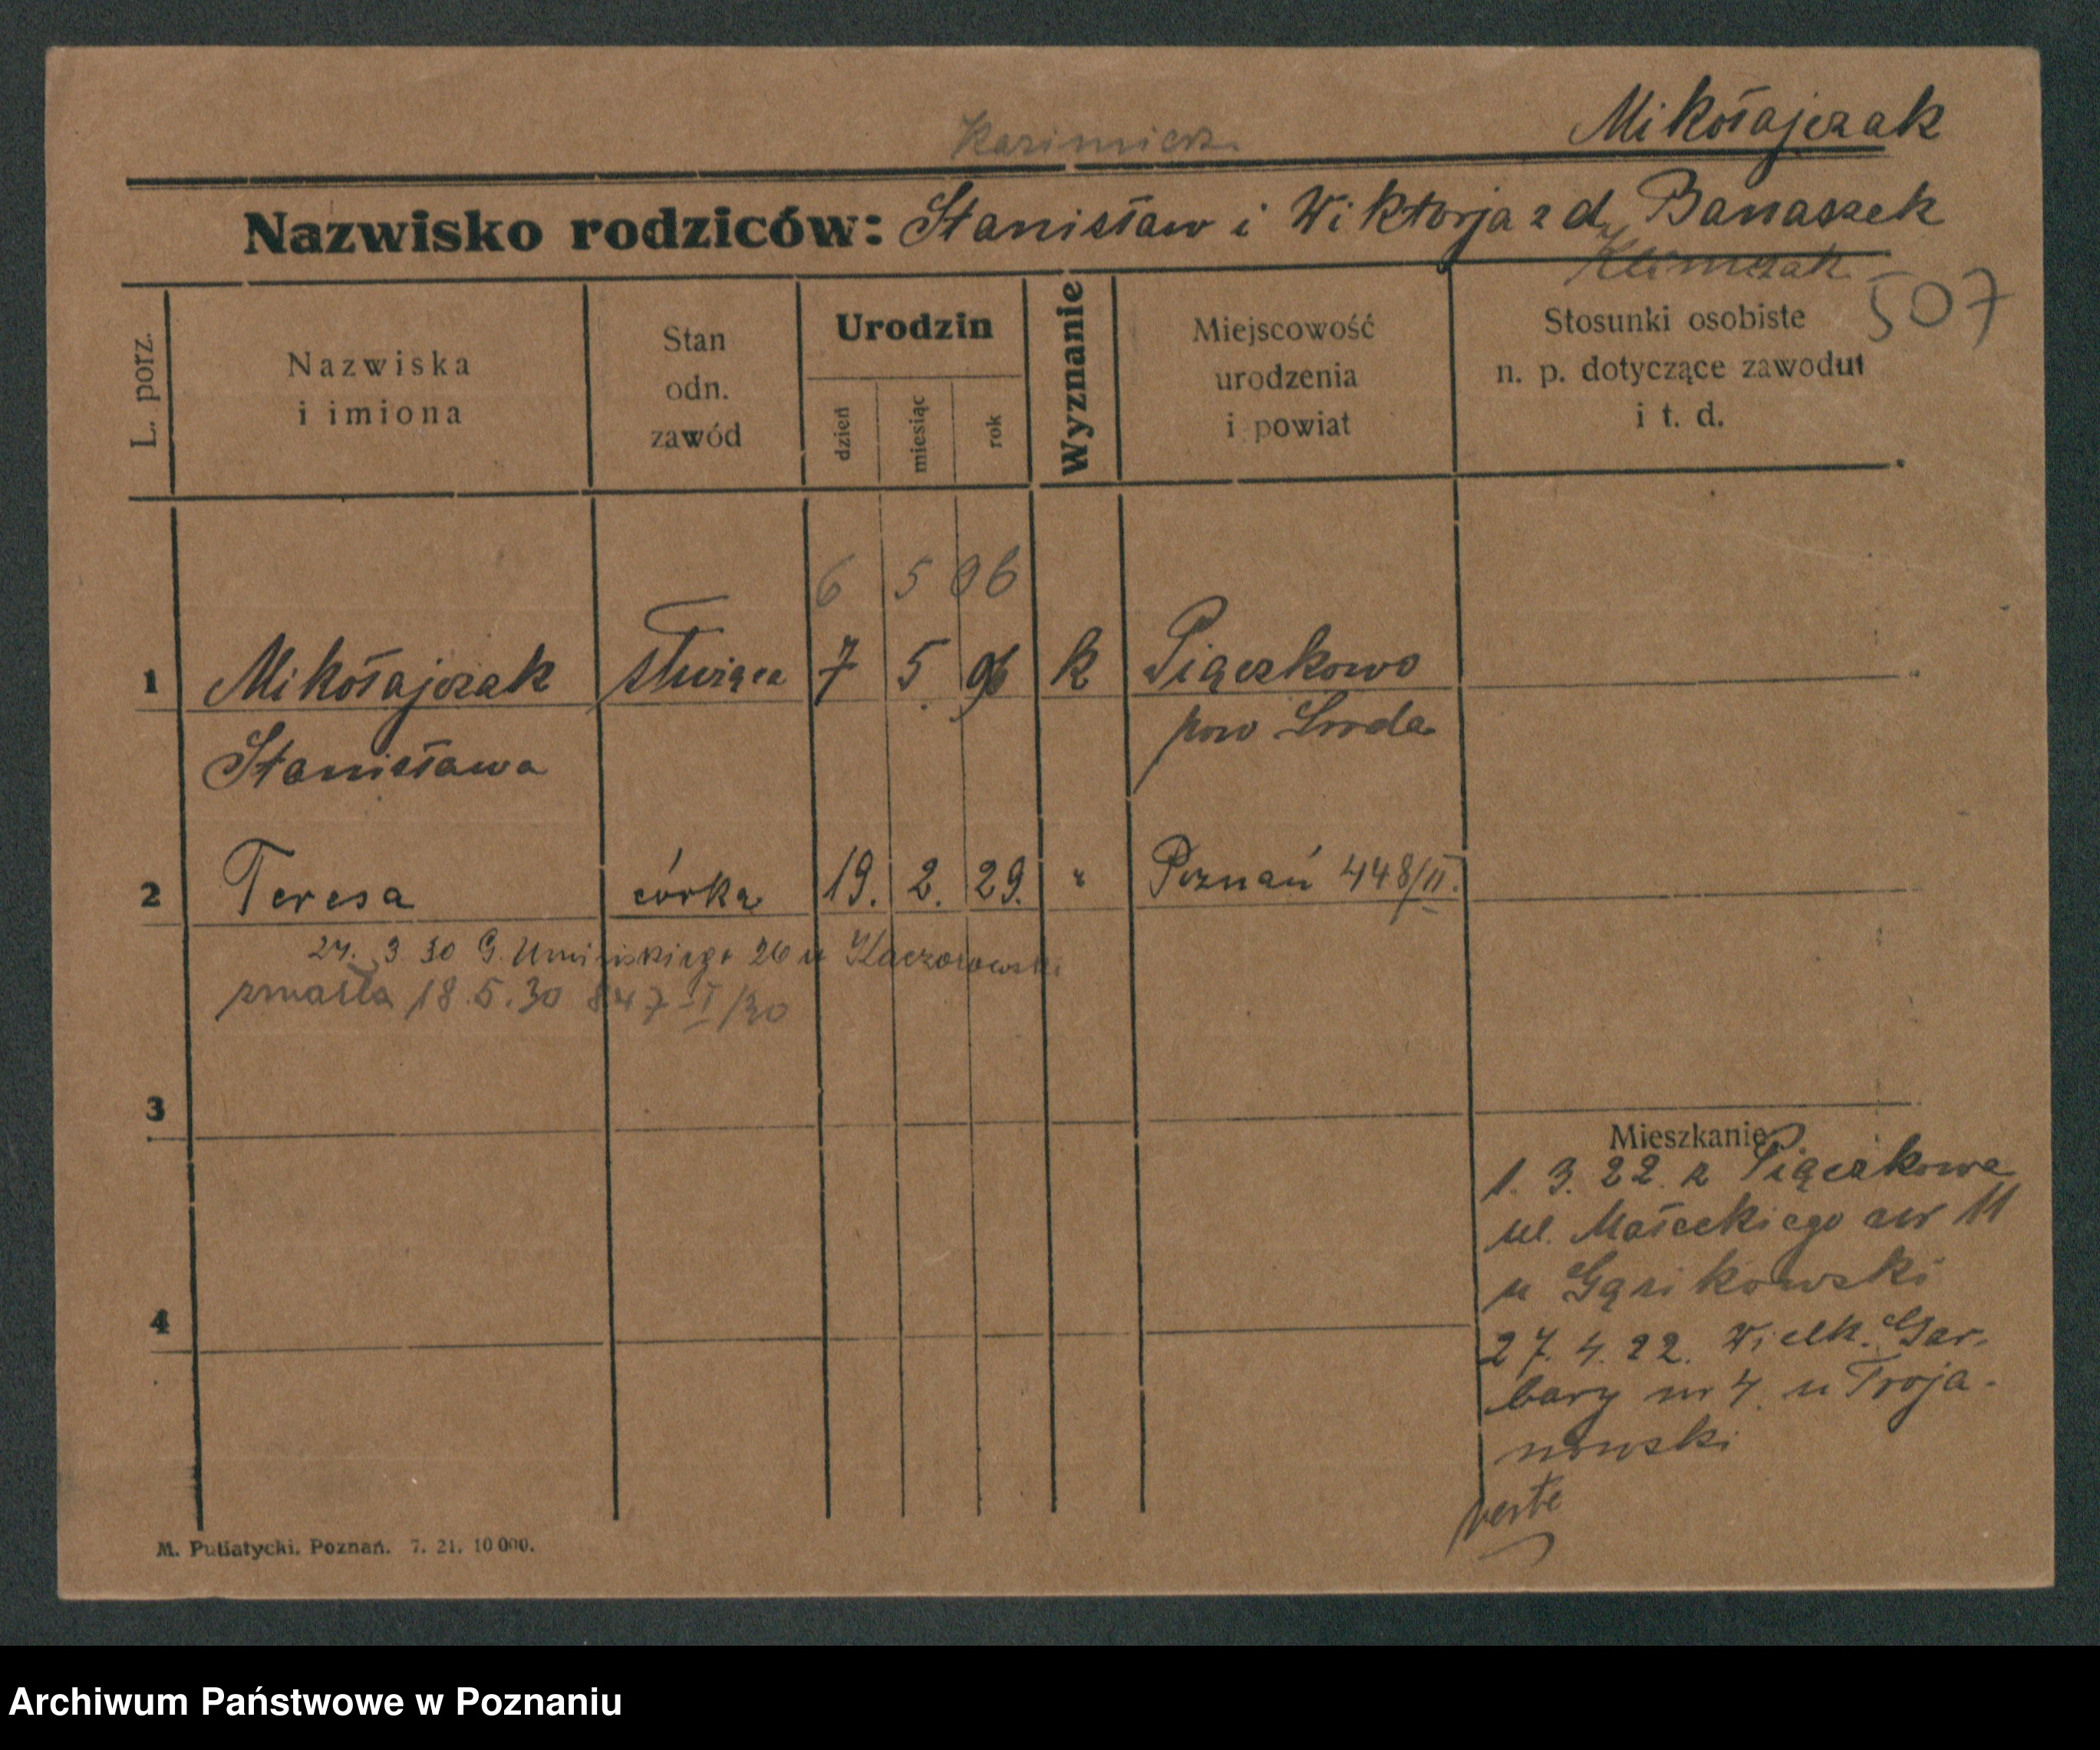 Kazimierz
Mikołajczak
Nazwisko rodziców: Stanisław i Wiktorja z d. Banaszek
Klimczak
507
L. porz.
Nazwiska
i imiona
Stan
odn.
zawód
Urodzin
dzień
miesiąc
rok
Wyznanie
Miejscowość
urodzenia
i powiat
Stosunki osobiste
n. p. dotyczące zawodu
i t. d.
6 5 06
1 Mikołajczak służąca 7 5 96 k Piączkowo
Stanisława pow Środa
2 Teresa córka 19. 2. 29. " Poznań 448/II.
24. 3 30 G. Umińskiego 26 u Kaczorowski
zmarła 18.5.30 847 II/30
3
Mieszkanie
1. 3. 22. z Piączkowa
ul. Małeckiego nr 11
u Gąsikowski
4
27. 4. 22. Wielk. Gar-
bary nr 4 u Troja-
nowski
verte
M. Putiatycki. Poznań. 7. 21. 10 000.
Archiwum Państwowe w Poznaniu